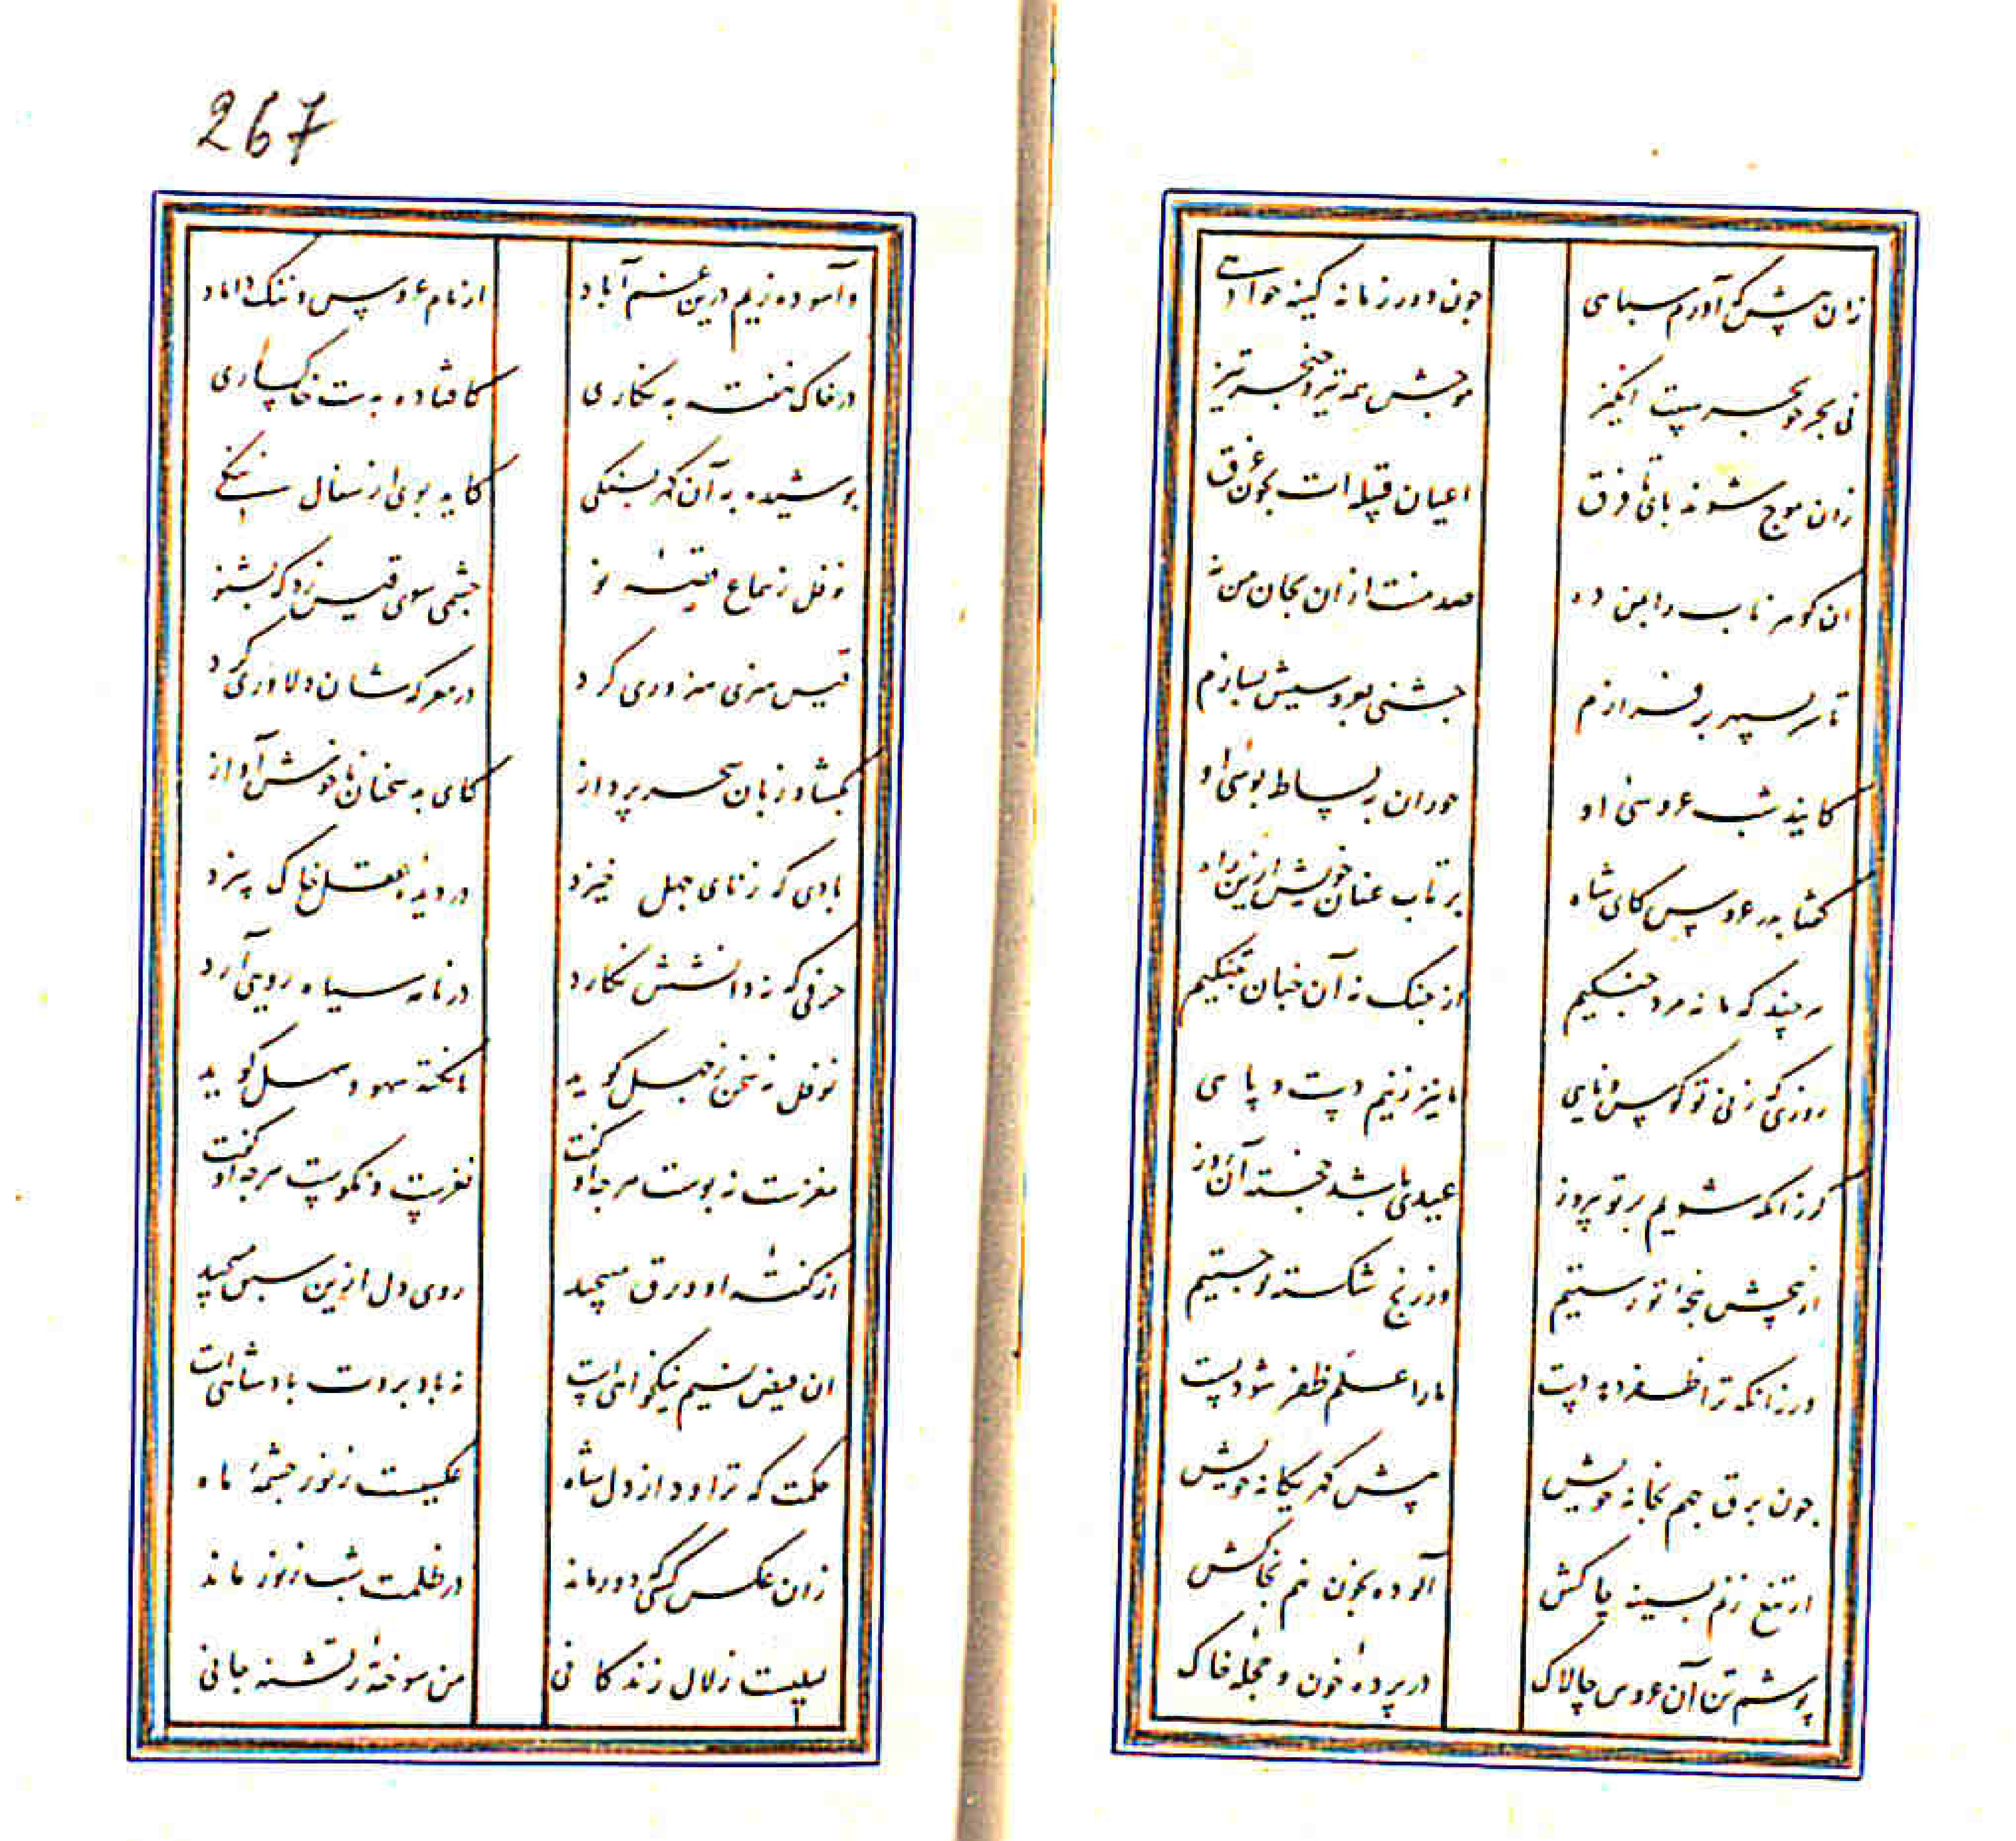 زان پیش که آورم سپاهی
چون دور زمانه کینه خواهی
نی بحر چو بحر سیت انگیز
موجش همه تیر و خنجر تیز
زان موج شوند پای تا فرق
اعیان قبیله ات بخون غرق
ان کوهر ناب را بمن ده
صد منت ازان بجان من نه
تا سر بسپهر بر فرازم
جشنی بعروسیش بسازم
کایند شب عروسی او
حوران به بساط بوسی او
گفتا پدر عروس کای شاه
برتاب عنان خویش ازین راه
هر چند که ما نه مرد جنکیم
از جنک نه آن چنان بتنکیم
روزی که زنی تو کوس و نایی
ما نیز زنیم دست و پایی
کر زانکه شویم بر تو پیروز
عیدی باشد خجسته آن روز
از پیچش پنجه تو رستیم
وز رنج شکسته تو جستیم
ور زانکه ترا ظفر دهد دست
ما را علم ظفر شود پست
چون برق جهم بخانه خویش
پیش کهر یکانه خویش
از تیغ زنم بسینه چاکش
آلوده بخون نهم بخاکش
پوشم تن آن عروس چالاک
در پرده خون و حجله خاک
267
و آسوده زیم درین غم آباد
از نام عروس و ننک داماد
در خاک نهفته به نکاری
کافتاده بدست خاکساری
پوشیده به آن کهر بسنکی
کاید بوی از سفال
نوفل ز سماع قصه نو
چشمی سوی قیس زد که بشنو
قیس هنری هنروری کرد
در معرکه شان دلاوری کرد
بکشاد زبان سحر پرداز
کای به سخنان خوش آواز
بادی که ز نای جهل خیزد
در دیده عقل خاک بیزد
حرفی که نه دانشش نکارد
در نامه سیاه رویی آرد
نوفل نه سخن ز جهل کوید
یا نکته سهو و سهل کوید
مغزست نه پوست هر چه او کفت
نغزست و نکوست هر چه او کفت
از کفته او ورق مپیچید
روی دل ازین سبق مپیچید
ان فیض نسیم نیکخواهی است
نه باد بروت پادشاهی است
حکمت که تراود از دل شاه
عکسیست ز نور چشمه ماه
زان عکس کسی که دور ماند
در ظلمت شب ز نور ماند
لیلیست زلال زندکانی
من سوخته تشنه جانی